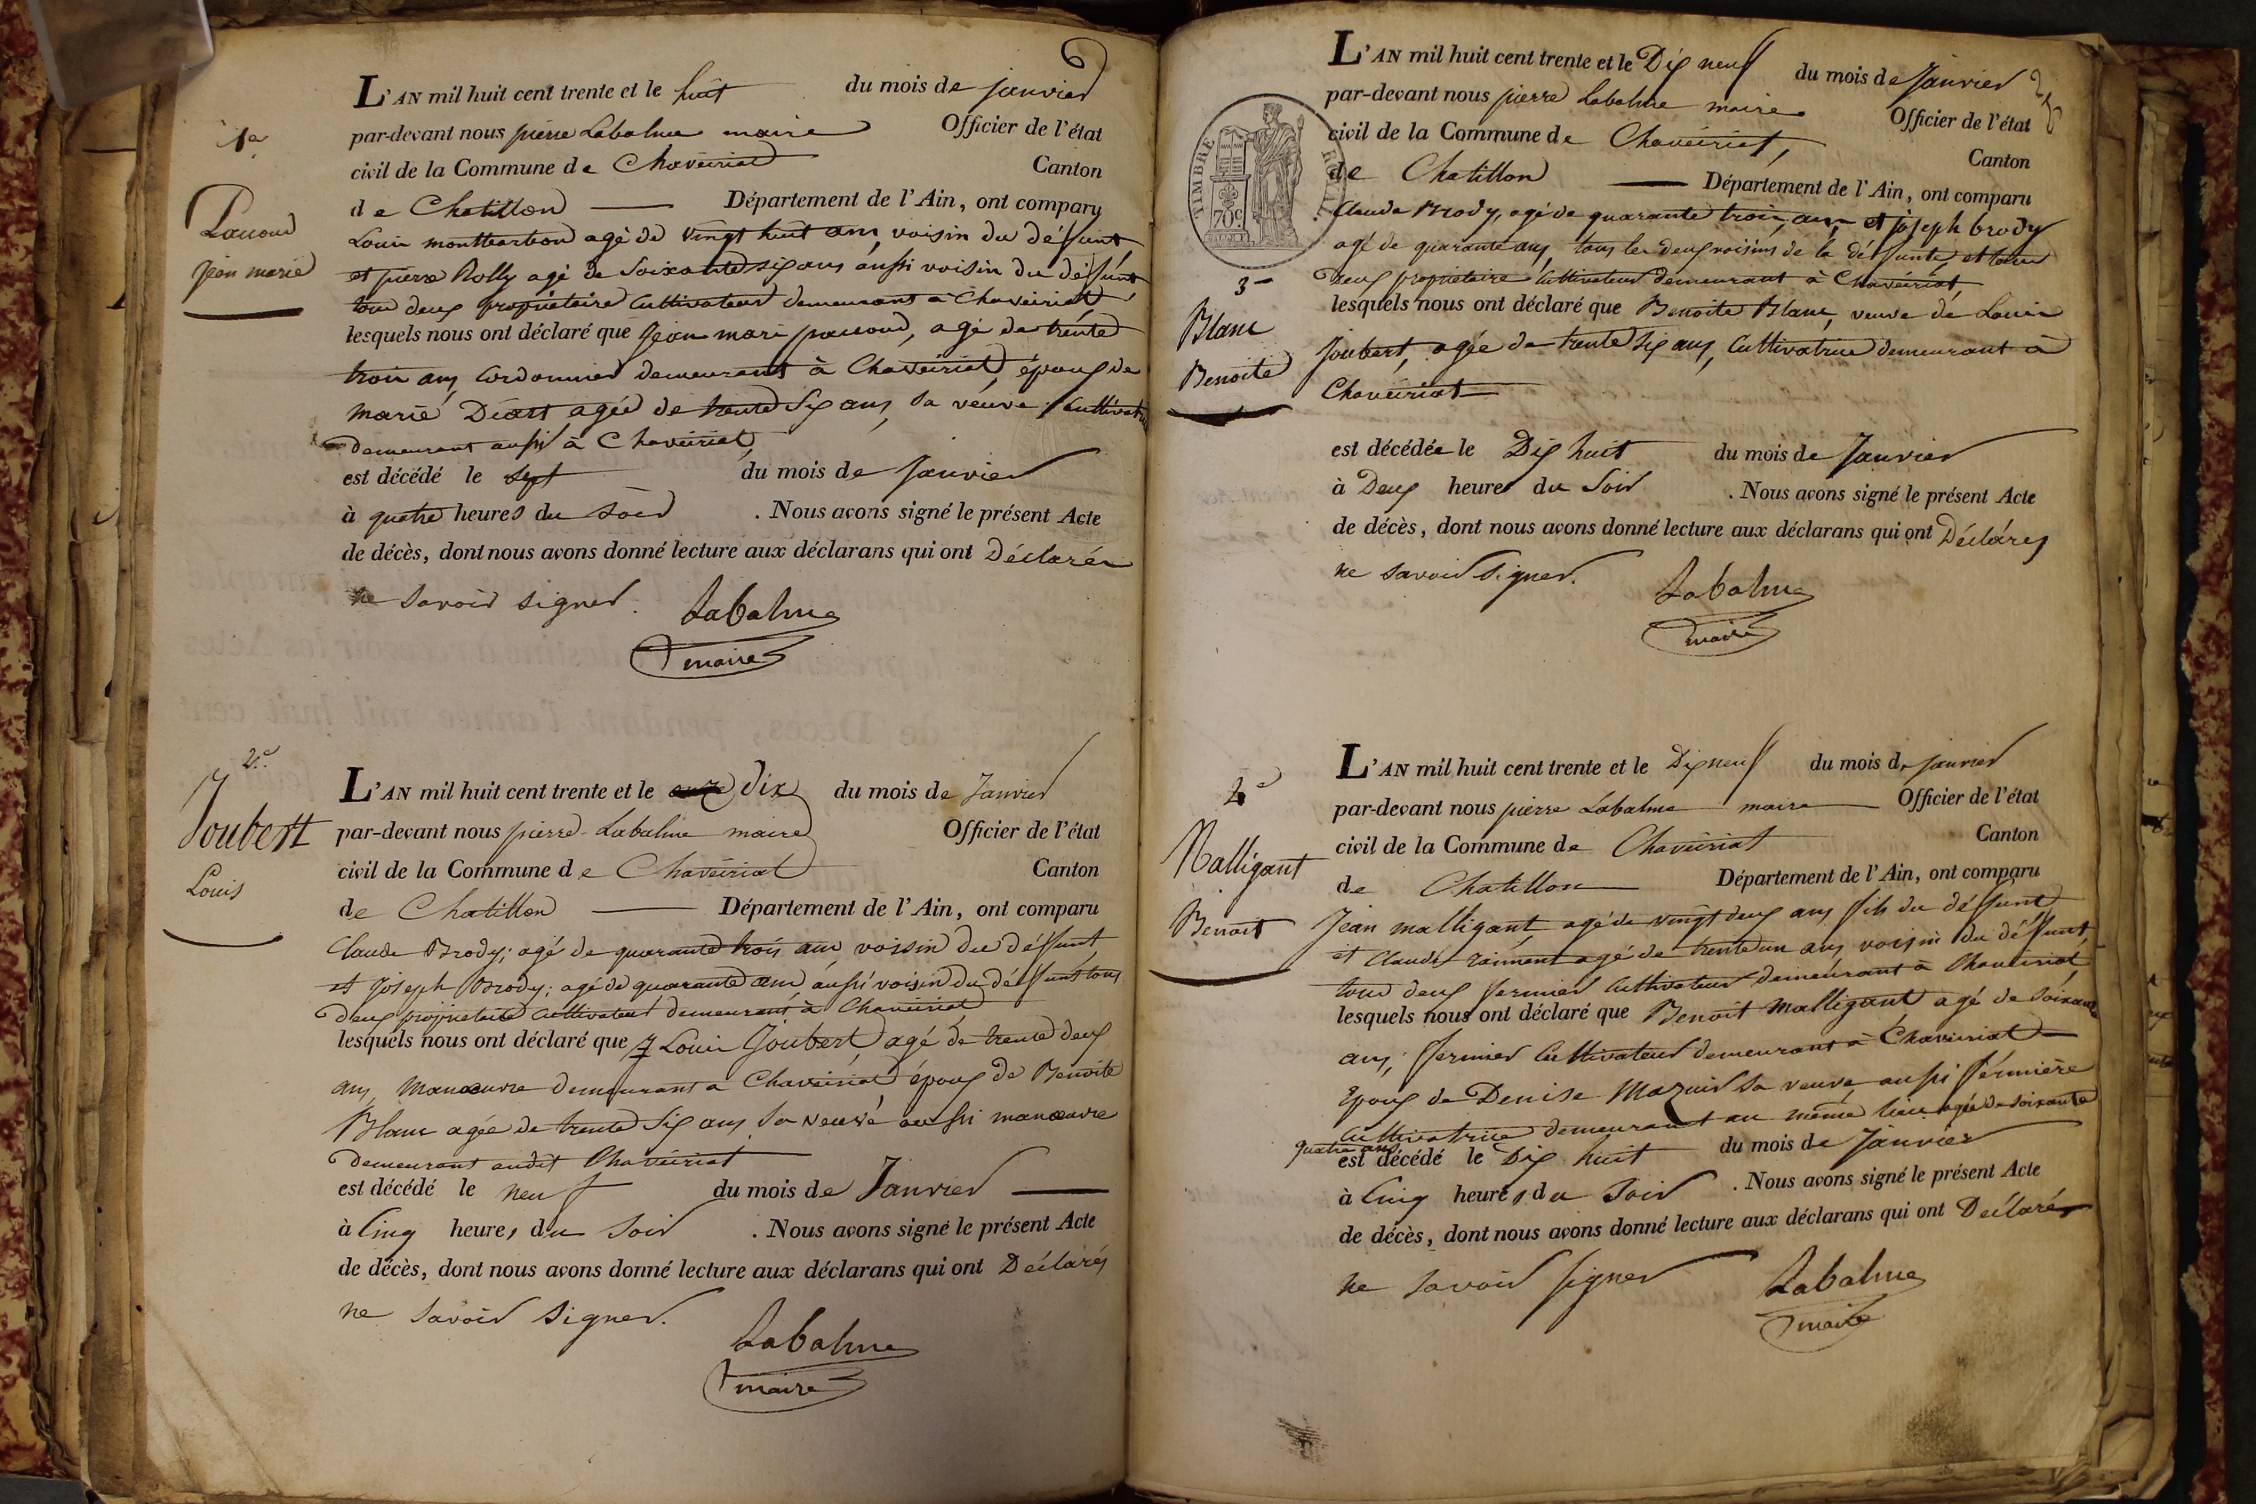 6
1er
Paccoud
Jean marie
L'AN mil huit cent trente et le huit du mois de janvier
par-devant nous pierre Labalme maire Officier de l'état
civil de la Commune de Chaveiriat Canton
de Chatillon Département de l'Ain, ont comparu
Louis montbarbon agé de vingt huit ans, voisin du déffunt
et pierre Rolly agé de soixante six ans aussi voisin du déffunt
tous deux propriétaire Cultivateur demeurant à Chaveiriat,
lesquels nous ont déclaré que Jean mari paccoud, agé de trente
trois ans, Cordonnier demeurant à Chaveiriat, époux de
marie Déart, agée de trente six ans, sa veuve, Cultivatrice
demeurant aussi à Chaveiriat,
est décédé le sept du mois de janvier
à quatre heures du soir . Nous avons signé le présent Acte
de décès, dont nous avons donné lecture aux déclarans qui ont Déclarés
ne savoir signer.
Labalme
maire
2e
Joubert
Louis
L'AN mil huit cent trente et le dix du mois de Janvier
par-devant nous pierre Labalme maire Officier de l'état
civil de la Commune de Chaveiriat Canton
de Chatillon Département de l'Ain, ont comparu
Claude Brody; agé de quarante trois ans, voisin du déffunt,
et Joseph Brody; agé de quarante ans, aussi voisin du déffunt tous
deux propriétaire Cultivateur demeurant à Chaveiriat
lesquels nous ont déclaré que Louis Joubert, agé de trente deux
ans, Manœuvre demeurant a Chaveiriat époux de Benoite
Blanc agée de trente six ans sa veuve aussi manœuvre
demeurant audit Chaveiriat
est décédé le neuf du mois de Janvier
à Cinq heures du soir . Nous avons signé le présent Acte
de décès, dont nous avons donné lecture aux déclarans qui ont Déclarés
ne savoir signer.
Labalme
maire
TIMBRE ROYAL
70c
3
Blanc
Benoite
L'AN mil huit cent trente et le Dix neuf du mois de Janvier
par-devant nous pierre Labalme maire Officier de l'état
civil de la Commune de Chaveiriat, Canton
de Chatillon Département de l'Ain, ont comparu
Claude Brody, agé de quarante trois, ans, et joseph brody
agé de quarante ans, tous les deux voisins de la déffunte, et tous
deux propriétaire Cultivateur demeurant à Chaveiriat
lesquels nous ont déclaré que Benoite Blanc, veuve de Louis
Joubert, agée de trente six ans, Cultivatrice demeurant à
Chaveiriat
est décédée le Dix huit du mois de Janvier
à Deux heures du soir . Nous avons signé le présent Acte
de décès, dont nous avons donné lecture aux déclarans qui ont Déclarés
ne savoir signer.
Labalme
maire
4e
Malligant
Benoit
L'AN mil huit cent trente et le Dix neuf du mois de janvier
par-devant nous pierre Labalme maire Officier de l'état
civil de la Commune de Chaveiriat Canton
de Chatillon Département de l'Ain, ont comparu
Jean malligant, agé de vingt deux ans, fils du déffunt
et Claude raiment agé de trente un ans, voisin du déffunt,
tous deux fermier Cultivateur demeurant à Chaveiriat,
lesquels nous ont déclaré que Benoit Malligant, agé de soixante
ans, fermier Cultivateur demeurant à Chaveiriat
Epoux de Denise Mazuir sa veuve, aussi férmière
Cultivatrice demeurant au même lieu, agée de soixante
quatre ans,
est décédé le Dix huit du mois de Janvier
à Cinq heures du soir . Nous avons signé le présent Acte
de décès, dont nous avons donné lecture aux déclarans qui ont Déclarés
ne savoir signer
Labalme
maire